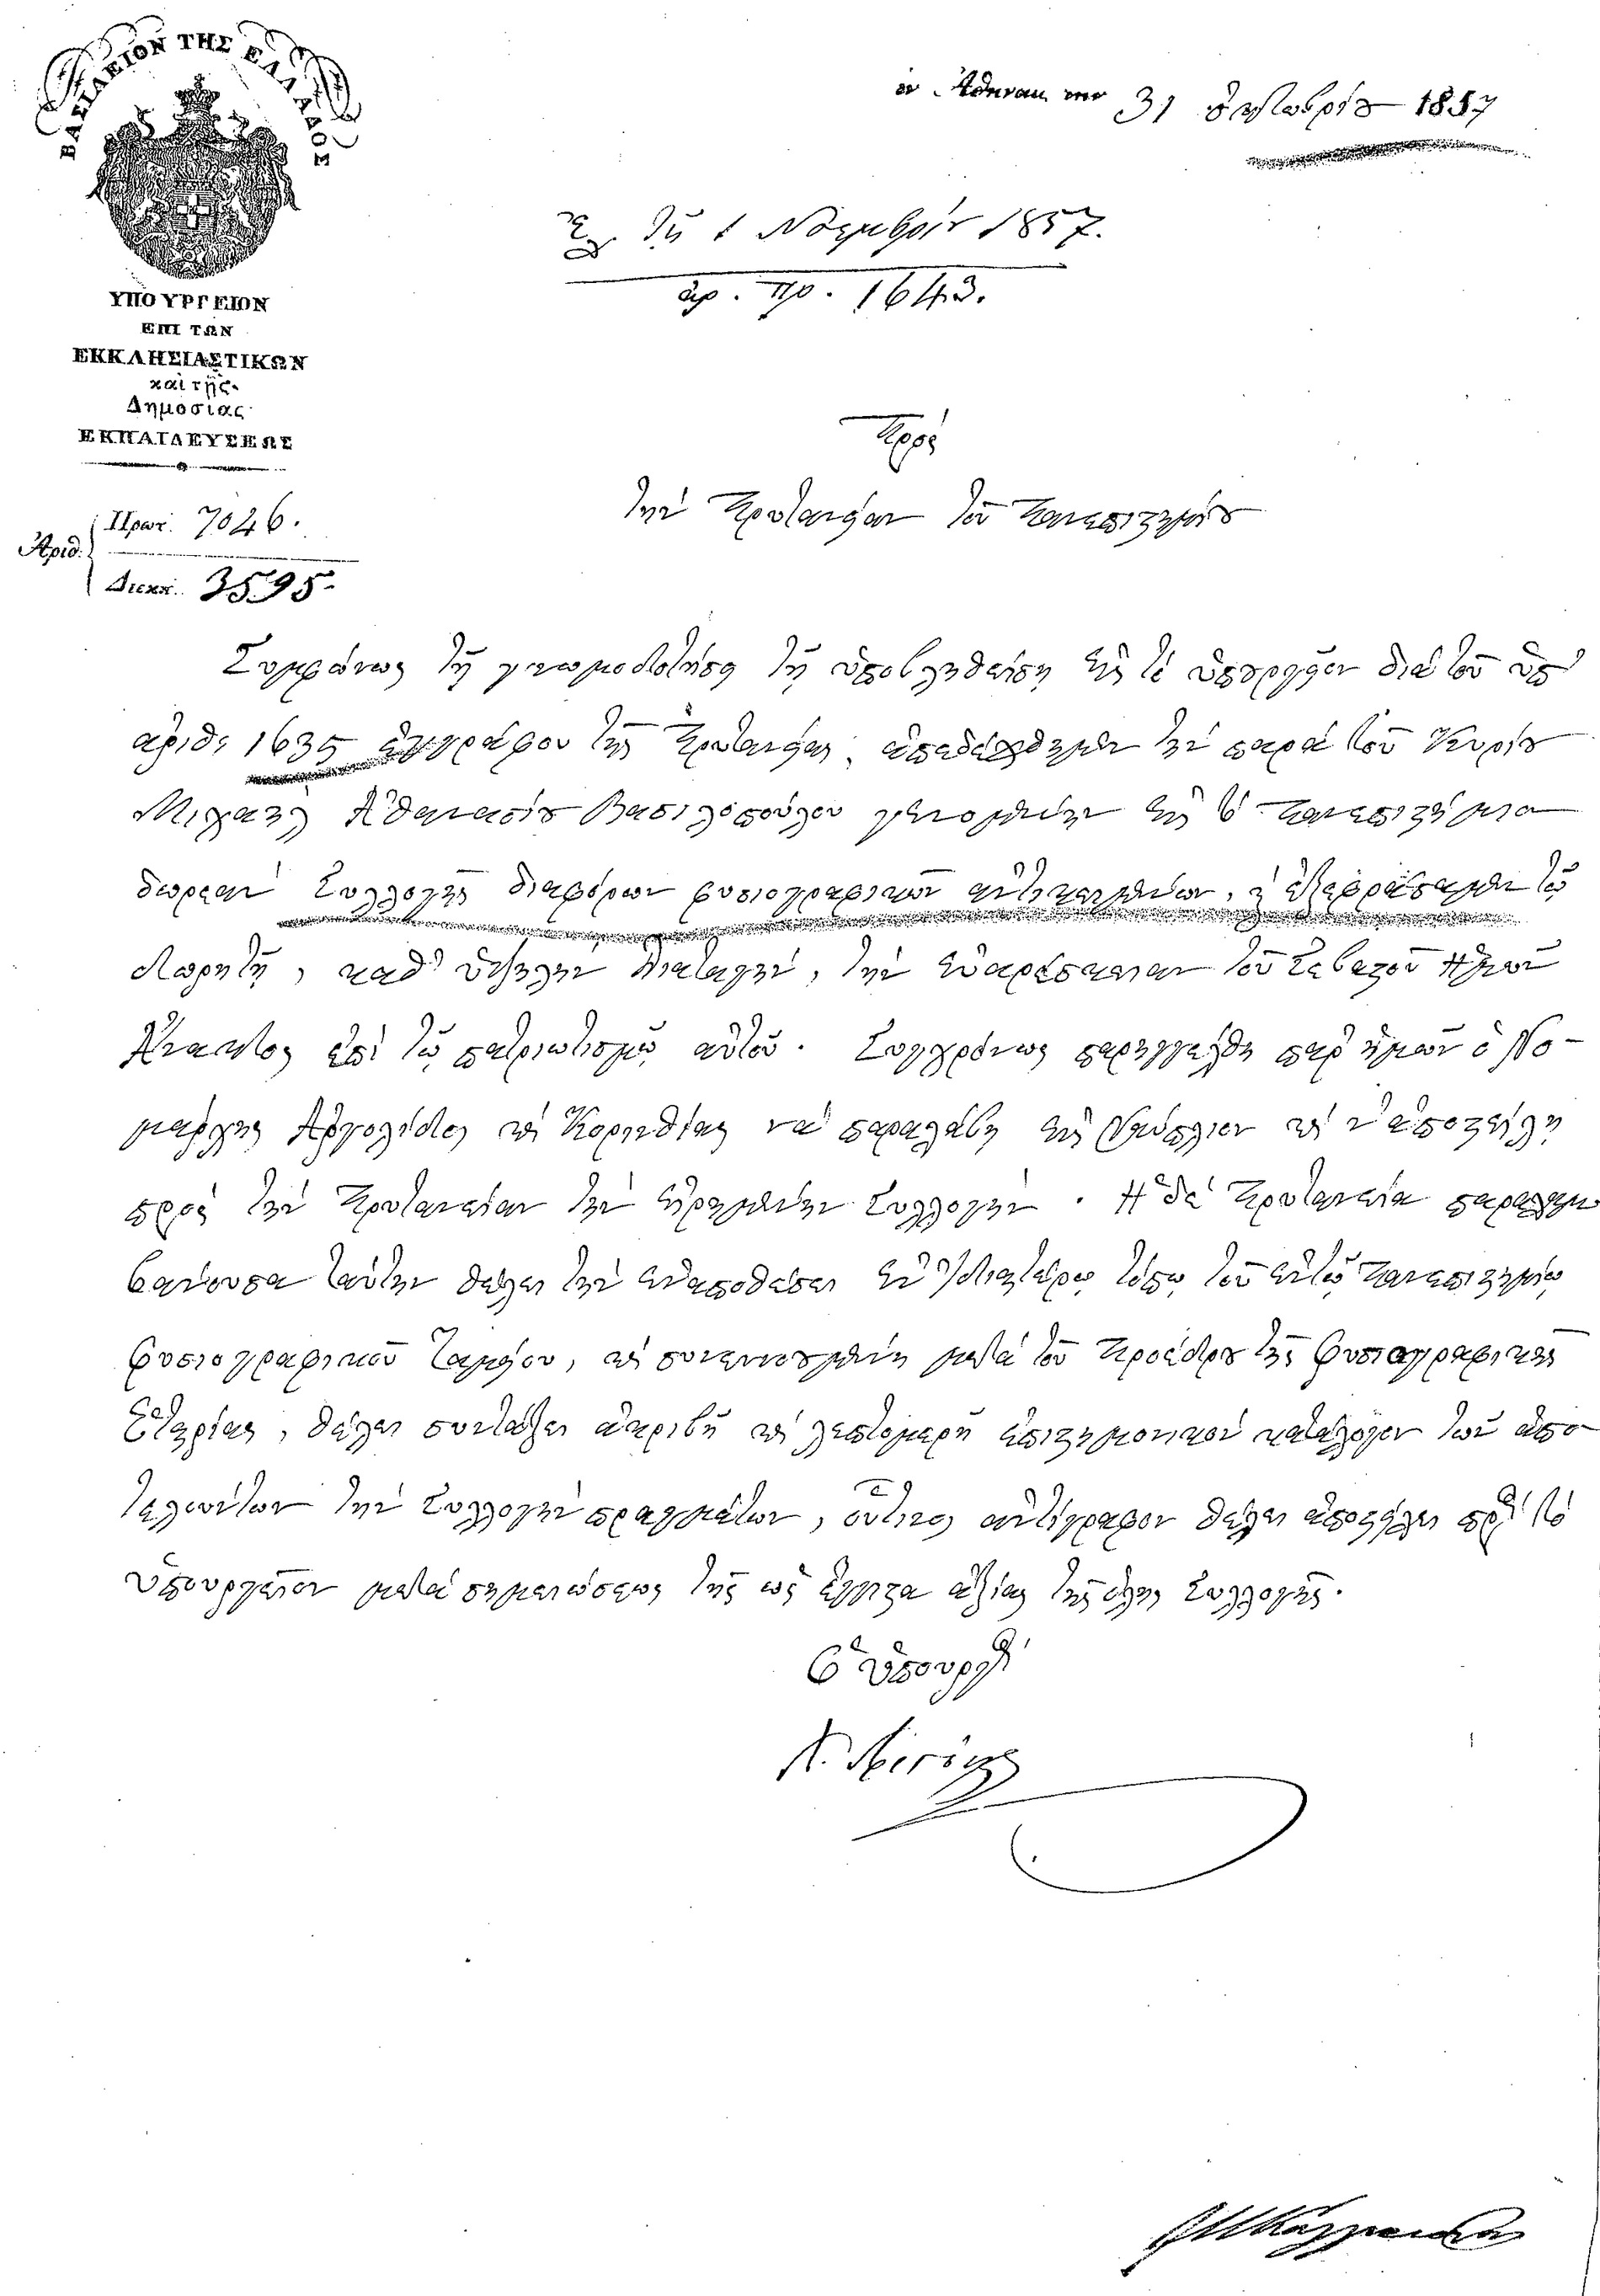 ΒΑΣΙΛΕΙΟΝ ΤΗΣ ΕΛΛΑΔΟΣ
ἐν Ἀθήναις την 31 Ὀκτωβρίου 1857
τῇ 1 Νοεμβρίου 1857.
ἀρ. πρ. 1643.
ΥΠΟΥΡΓΕΙΟΝ
ΕΠΙ ΤΩΝ
ΕΚΚΛΗΣΙΑΣΤΙΚΩΝ
καὶ τῆς
Δημοσίας
ΕΚΠΑΙΔΕΥΣΕΩΣ
Πρὸς
τὴν Πρυτανείαν τοῦ Πανεπιστημίου
Ἀριθ. Πρωτ. 7046.
Διεκπ. 3595.
Συμφώνως τῇ γνωμοδοτήσει τῇ ὑποβληθείσῃ εἰς τὸ ὑπουργεῖον διὰ τοῦ ὑπ'
ἀριθ. 1635 ἐγγράφου τῆς Πρυτανείας ἀπεδέχθημεν τὴν παρὰ τοῦ Κυρίου
Μιχαὴλ Ἀθανασίου Βασιλοπούλου γενομένην εἰς τὸ Πανεπιστήμιον
δωρεὰν Συλλογῆς διαφόρων φυσιογραφικῶν ἀντικειμένων, καὶ ἐξεφράσαμεν τῷ
Δωρητῇ, καθ' ὑψηλὴν διαταγὴν, τὴν εὐαρέσκειαν τοῦ Σεβαστοῦ ἡμῶν
Ἄνακτος ἐπὶ τῷ πατριωτισμῷ αὐτοῦ. Συγχρόνως παρηγγέλθη παρ' ἡμῶν ὁ Νο-
μάρχης Ἀργολίδος καὶ Κορινθίας νὰ παραλάβῃ εἰς Ναύπλιον καὶ ν' ἀποστείλῃ
πρὸς τὴν Πρυτανείαν τὴν εἰρημένην Συλλογὴν. Ἡ δὲ Πρυτανεία παραλαμ
βάνουσα ταύτην θέλει τὴν ἐναποθέσει ἐν ἰδιαιτέρῳ τόπῳ τοῦ ἐν τῷ Πανεπιστημίῳ
φυσιογραφικοῦ Ταμείου, καὶ συνεννοουμένη μετὰ τοῦ Προέδρου τῆς φυσιογραφικῆς
Ἑταιρίας, θέλει συντάξει ἀκριβῆ καὶ λεπτομερῆ ἐπιστημονικὸν κατάλογον τῶν ἀπο
τελούντων τὴν Συλλογὴν πραγμάτων, οὗτινος ἀντίγραφον θέλει ἀποστείλει πρὸς τὸ
ὑπουργεῖον μετὰ σημειώσεως τῆς ὡς ἔγγιστα ἀξίας τῆς ὅλης Συλλογῆς.
Ὁ Ὑπουργὸς